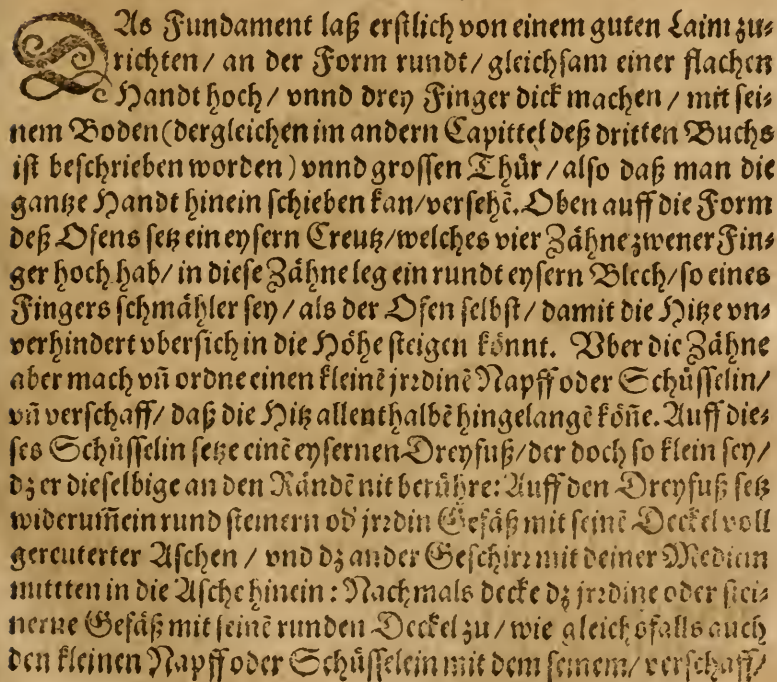 DAs Fundament laß erstlich von einem guten Laim zu⸗
richten / an der Form rundt / gleichsam einer flachen
Handt hoch / vnnd drey Finger dick machen / mit sei⸗
nem Boden (dergleichen im andern Capittel deß dritten Buchs
ist beschrieben worden) vnnd grossen Thür / also daß man die
gantze Handt hinein schieben kan / versehẽ. Oben auff die Form
deß Ofens setz ein eysern Creutz / welches vier Zähne zwener Fin⸗
ger hoch hab / in diese Zähne leg ein rundt eysern Blech / so eines
Fingers schmähler sey / als der Ofen selbst / damit die Hitze vn⸗
verhindert vbersich in die Höhe steigen könnt. Vber die Zähne
aber mach vñ ordne einen kleinẽ jrꝛdinẽ Napff oder Schüsselin /
vñ verschaff / daß die Hitz allenthalbẽ hingelangẽ köñe. Auff die⸗
ses Schüsselin setze einẽ eysernen Dreyfuß / der doch so klein sey /
dz er dieselbige an den Rändẽ nit berühre: Auff den Dreyfuß setz
widerum̃ ein rund steinern od' jrꝛdin Gefäß mit seinẽ Deckel voll
gereuterter Aschen / vnd dz ander Geschirꝛ mit deiner Medicin
mittten in die Asche hinein: Nachmals decke dz jrꝛdine oder stei⸗
nerne Gefäß mit seinẽ runden Deckel zu / wie gleichsfalls auch
den kleinen Napff oder Schüsselein mit dem seinem / verschaff /